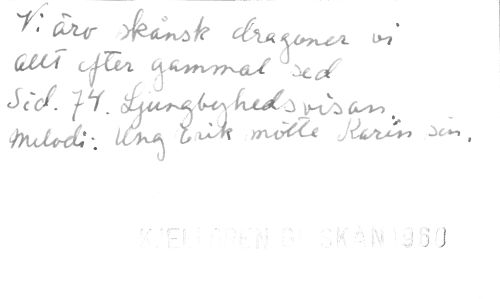 Vi äro skånsk dragoner vi
allt efter gammal sed
Sid. 74. Ljungbyhedsvisan.
Melodi: Ung Erik mötte Karin sin.
KJELLGREN G. SKÅN 1960